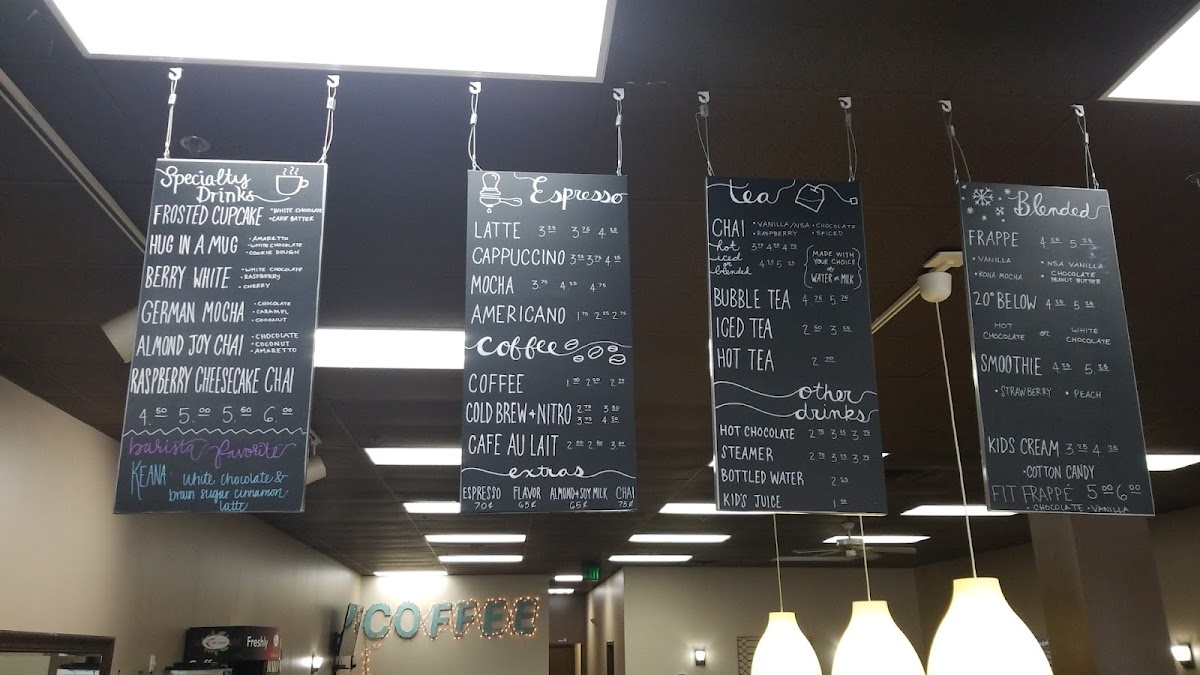 Specialty
Drinks
FROSTED CUPCAKE
• WHITE CHOCOLATE
• CAKE BATTER
HUG IN A MUG
• AMARETTO
• WHITE CHOCOLATE
• COOKIE DOUGH
BERRY WHITE
• WHITE CHOCOLATE
• RASPBERRY
• CHERRY
GERMAN MOCHA
• CHOCOLATE
• CARAMEL
• COCONUT
ALMOND JOY CHAI
• CHOCOLATE
• COCONUT
• AMARETTO
RASPBERRY CHEESECAKE CHAI
4.50 5.00 5.50 6.00
barista favorite
KEANA: white chocolate &
brown sugar cinnamon
latte
Espresso
LATTE
CAPPUCCINO
MOCHA 3.75 4.25 4.75
AMERICANO 1.75 2.25 2.75
Coffee
COFFEE
COLD BREW + NITRO
CAFE AU LAIT
extras
ESPRESSO FLAVOR ALMOND & SOY MILK CHAI
70¢ 65¢ 65¢ 75¢
tea
CHAI • VANILLA/NSA • CHOCOLATE
• RASPBERRY • SPICED
hot
iced
or
blended
MADE WITH
YOUR CHOICE of
WATER or MILK
BUBBLE TEA 4.75 5.75
ICED TEA
HOT TEA
other
drinks
HOT CHOCOLATE
STEAMER
BOTTLED WATER
KID'S JUICE
Blended
FRAPPE
• VANILLA • NSA VANILLA
• KONA MOCHA • CHOCOLATE
PEANUT BUTTER
20° BELOW
HOT
CHOCOLATE or WHITE
CHOCOLATE
SMOOTHIE
• STRAWBERRY • PEACH
KIDS CREAM
• COTTON CANDY
FIT FRAPPÉ 5.00 6.00
• CHOCOLATE • VANILLA
COFFEE
Freshly